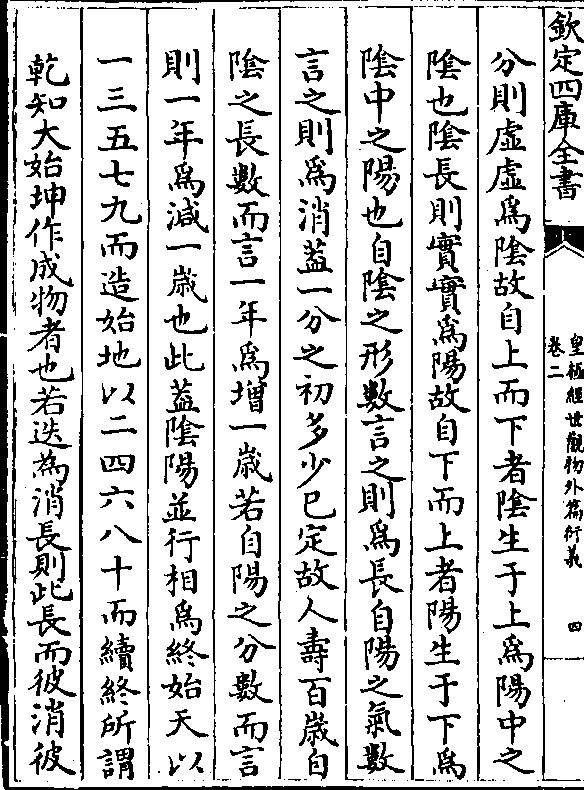 欽定四庫全書
皇極經世觀物外篇衍義
卷二
四
分則虛虛爲陰故自上而下者陰生于上爲陽中之
陰也陰長則實實爲陽故自下而上者陽生于下爲
陰中之陽也自陰之形數言之則爲長自陽之氣數
言之則爲消蓋一分之初多少已定故人壽百歲自
陰之長數而言一年爲增一歲若自陽之分數而言
則一年爲減一歲也此蓋陰陽並行相爲終始天以
一三五七九而造始地以二四六八十而續終所謂
乾知大始坤作成物者也若迭為消長則此長而彼消彼